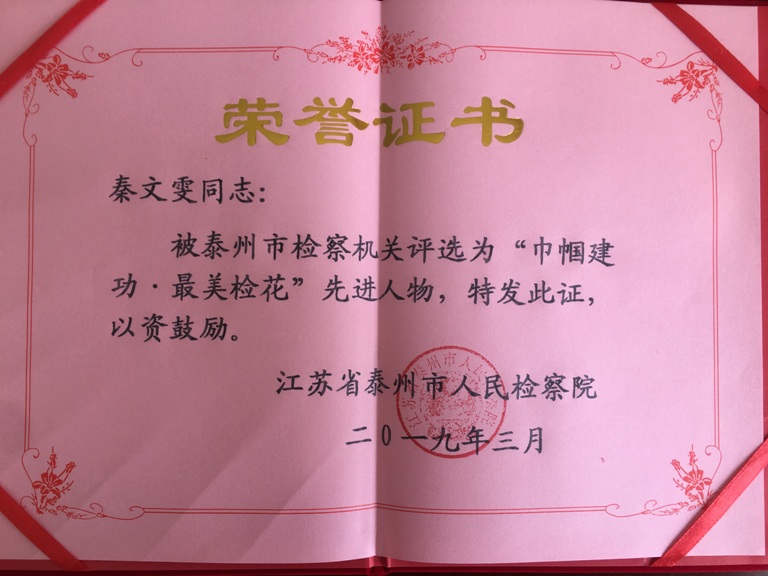 荣誉证书
秦文雯同志：
被泰州市检察机关评选为“巾帼建
功·最美检花”先进人物，特发此证，
以资鼓励。
江苏省泰州市人民检察院
二0一九年三月